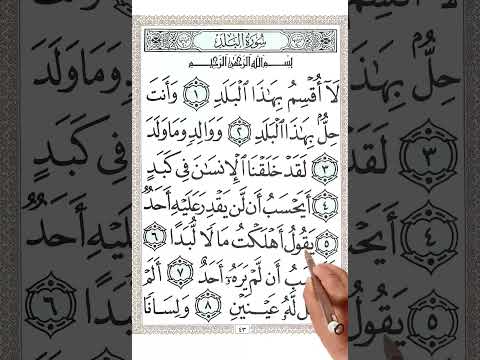 سُورَةُ الْبَلَدِ
بِسْمِ اللَّهِ الرَّحْمَٰنِ الرَّحِيمِ
لَآ أُقْسِمُ بِهَٰذَا ٱلْبَلَدِ ١ وَأَنتَ
حِلٌّۢ بِهَٰذَا ٱلْبَلَدِ ٢ وَوَالِدٍ وَمَا وَلَدَ
٣ لَقَدْ خَلَقْنَا ٱلْإِنسَٰنَ فِى كَبَدٍ
٤ أَيَحْسَبُ أَن لَّن يَقْدِرَ عَلَيْهِ أَحَدٌ
٥ يَقُولُ أَهْلَكْتُ مَالًا لُّبَدًا ٦
أَن لَّمْ يَرَهُۥٓ أَحَدٌ ٧ أَلَمْ
لَّهُۥ عَيْنَيْنِ ٨ وَلِسَانًا
٤٣